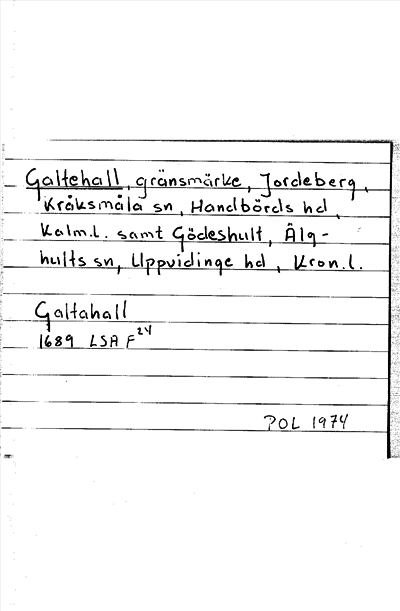 Galtehall, gränsmärke, Jordeberg,
Kråksmåla sn, Handbörds hd,
Kalm.l. samt Gödeshult, Älg-
hults sn, Uppvidinge hd, Kron.l.
Galtahall
1689 LSA F24
POL 1974